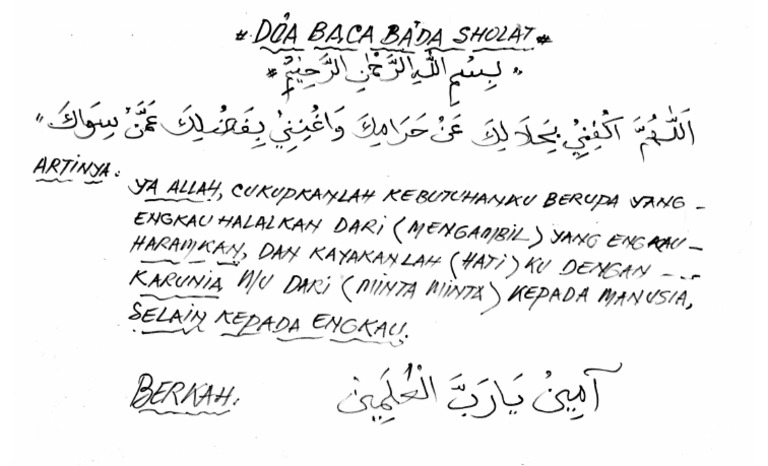 # DO'A BACA BA'DA SHOLAT #
"بِسْمِ اللّٰهِ الرَّحْمٰنِ الرَّحِيْمِ #
اَللّٰهُمَّ اكْفِنِيْ بِحَلَالِكَ عَنْ حَرَامِكَ وَاغْنِنِيْ بِفَضْلِكَ عَمَّنْ سِوَاكَ "
ARTINYA:
YA ALLAH, CUKUPKANLAH KEBUTUHANKU BERUPA YANG -
ENGKAU HALALKAN DARI (MENGAMBIL) YANG ENGKAU -
HARAMKAN, DAN KAYAKANLAH (HATI) KU DENGAN - - -
KARUNIA MU DARI (MINTA MINTA) KEPADA MANUSIA,
SELAIN KEPADA ENGKAU.
BERKAH: آمِيْنْ يَارَبَّ الْعٰلَمِيْنْ